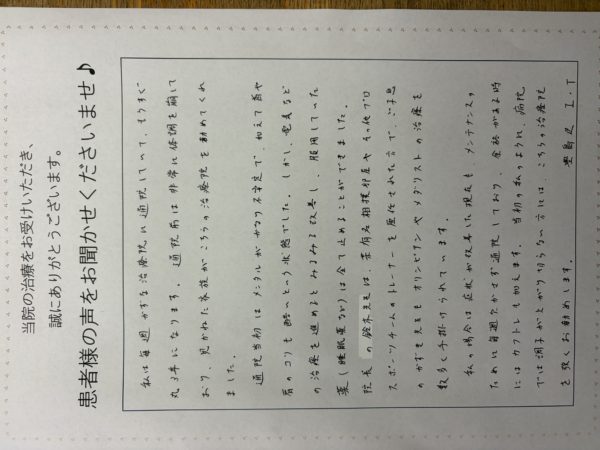 当院の治療をお受けいただき、
誠にありがとうございます。
患者様の声をお聞かせくださいませ♪
私は毎週かずな治療院に通院していて、もうすぐ
丸3年になります。通院前は非常に体調を崩して
おり、見かねた家族がこちらの治療院を勧めてくれ
ました。
通院当初は、メンタルがかなり不安定で、加えて首や
肩のコリも酷いという状態でした。しかし、電気など
の治療を進めるとみるみる改善し、服用していた
薬(睡眠薬など)は全て止めることができました。
院長の鈴木先生は、某有名相撲部屋やその他プロ
スポーツチームのトレーナーを歴任された方で、ご子息
のかずも先生もオリンピアンやメダリストの治療を
数多く手掛けられています。
私の場合は症状が改善した現在も、メンテナンスの
ために毎週欠かさず通院しており、余裕がある時
にはカットレも加えます。当初の私のように、病院
では調子が上がり切らない方には、こちらの治療院
を強くお勧めします。
豊島区 I.T